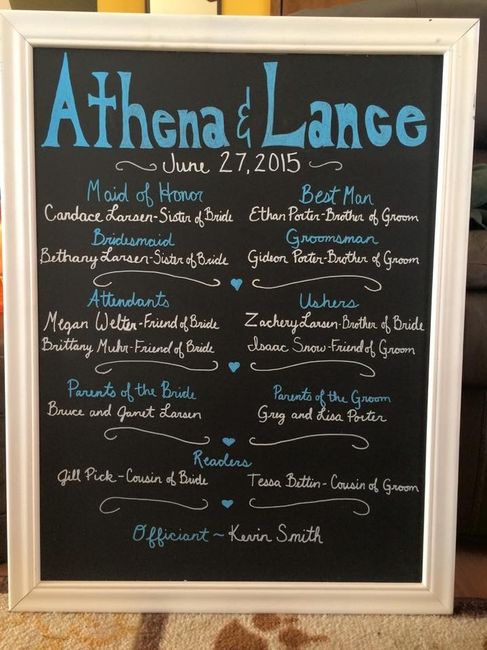 Athena & Lance
June 27, 2015
Maid of Honor
Candace Larsen-Sister of Bride
Best Man
Ethan Porter-Brother of Groom
Bridesmaid
Bethany Larsen-Sister of Bride
Groomsman
Gideon Porter-Brother of Groom
Attendants
Megan Welter-Friend of Bride
Brittany Muhr-Friend of Bride
Ushers
Zachery Larsen-Brother of Bride
Isaac Snow-Friend of Groom
Parents of the Bride
Bruce and Janet Larsen
Parents of the Groom
Greg and Lisa Porter
Readers
Jill Pick-Cousin of Bride
Tessa Bettin-Cousin of Groom
Officiant ~ Kevin Smith